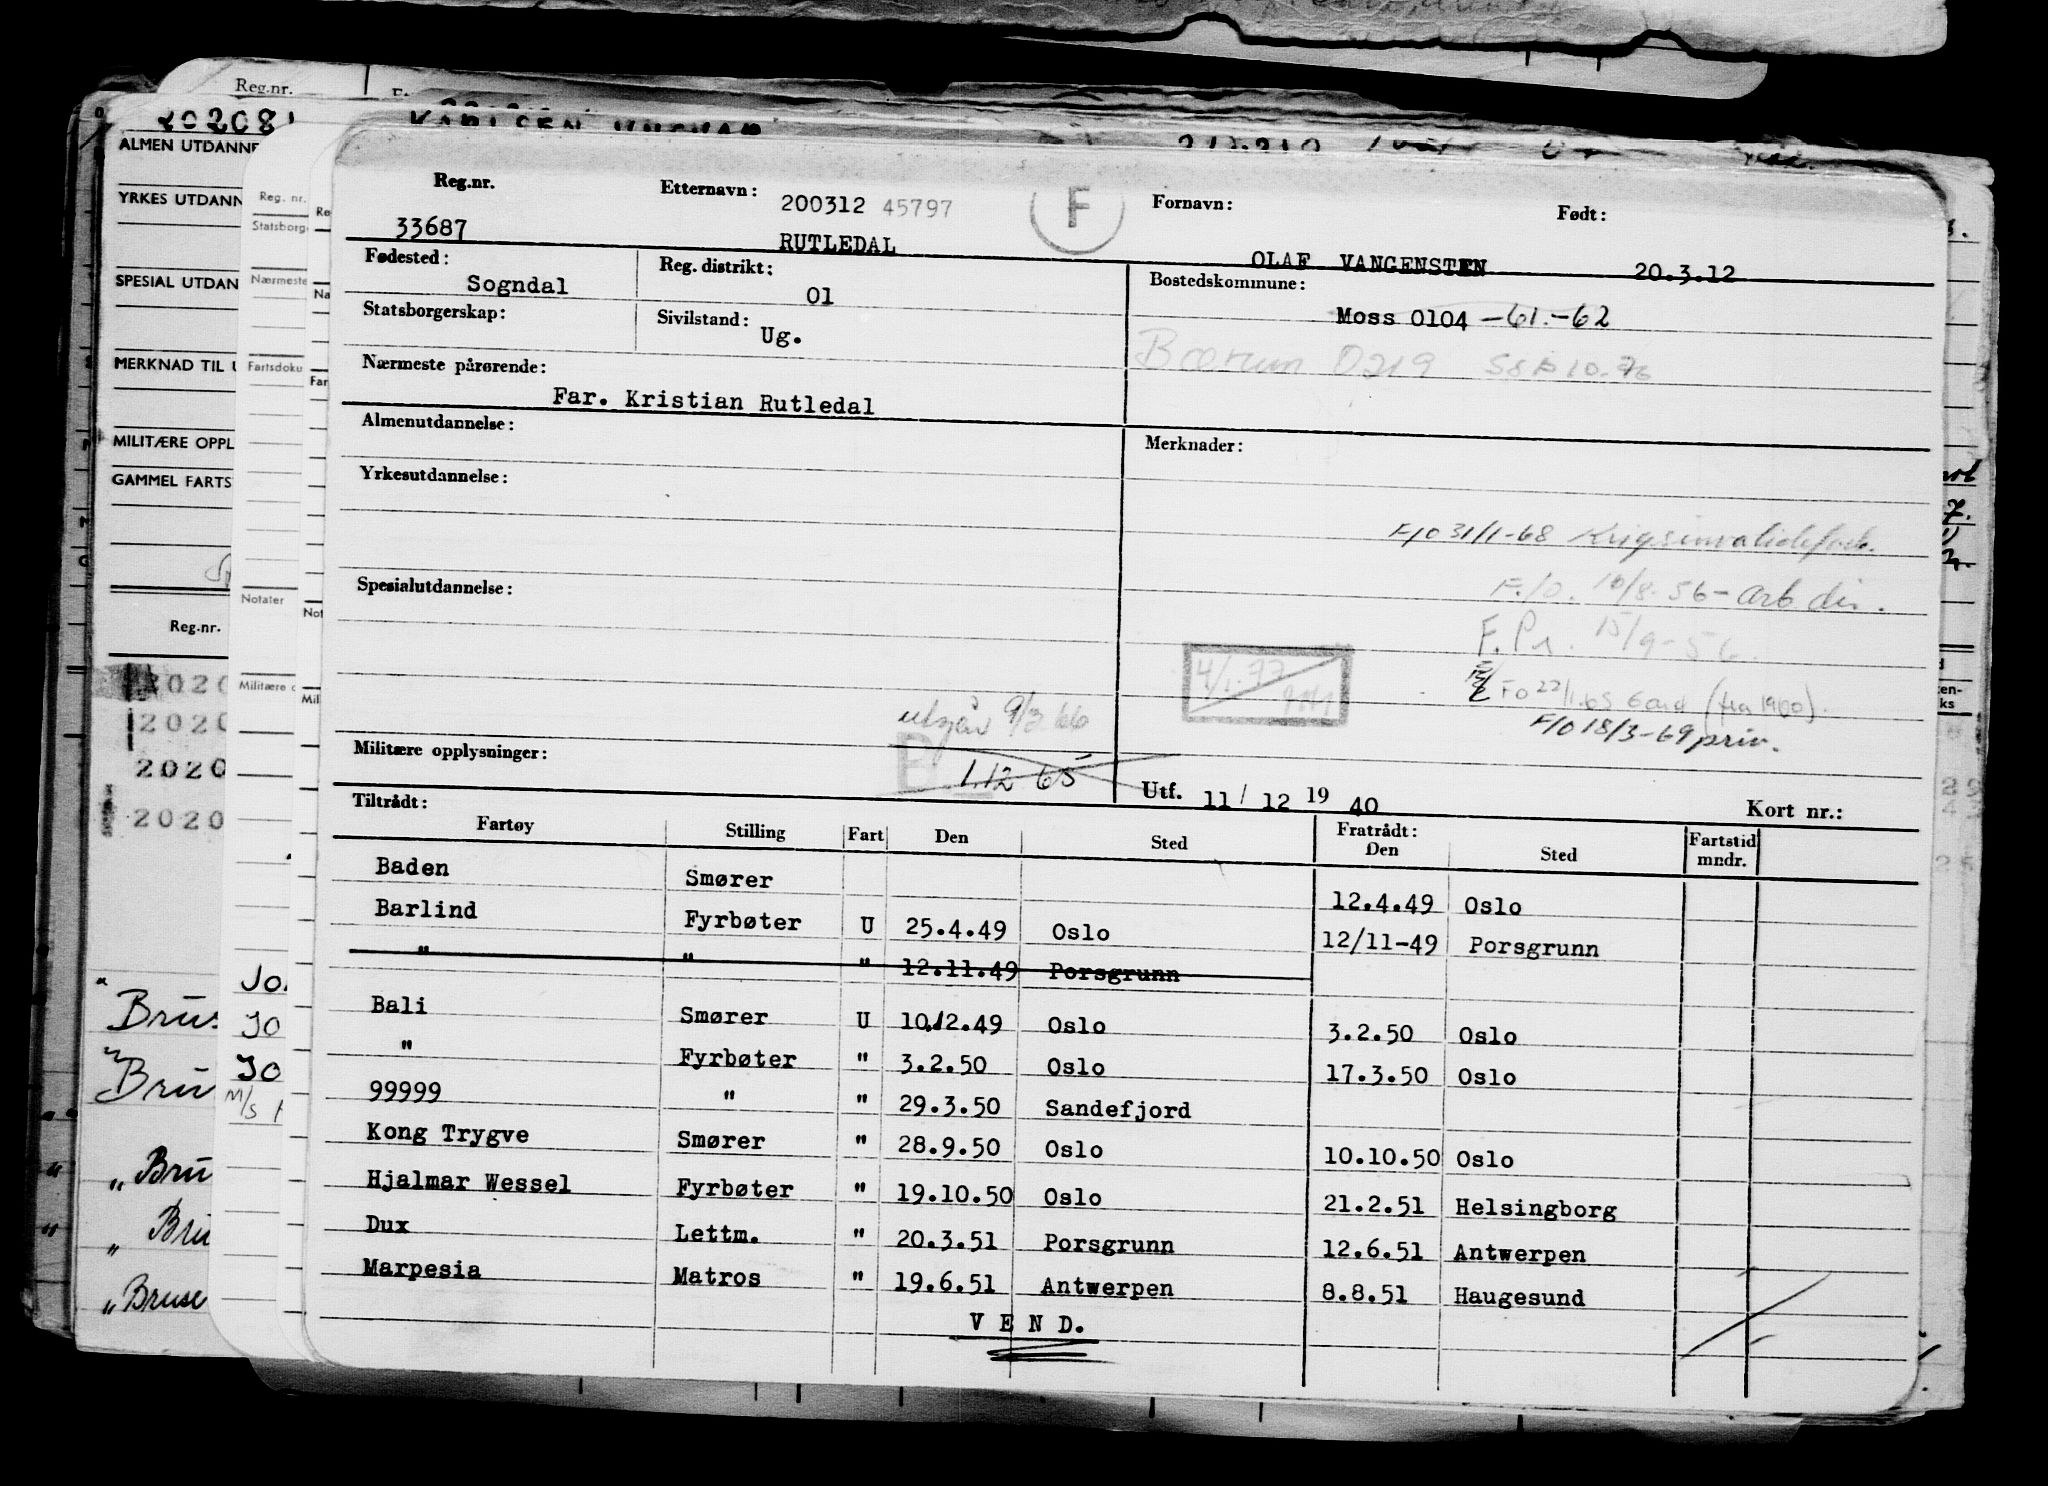 Reg.nr.
20208
KARLSEN
ALMEN UTDANNE
YRKES UTDANN
SPESIAL UTDAN
MERKNAD TIL U
MILITÆRE OPPL
GAMMEL FARTS
Reg.nr.
2020
2020
2020
2020
" Brus
" Bru
" „ Bru
" „ Bru
„ Bruse
Reg. nr.
Statsborge
Nærmeste
Fartsdoku
Notater
Militære o
Jo
Jo
Jo
M/S
Reg.nr. Etternavn: 200312 45797 F Fornavn: Født:
33687 RUTLEDAL OLAF VANGENSTEN 20.3.12
Fødested: Sogndal Reg. distrikt: 01 Bostedskommune: Moss 0104 -61.-62
Statsborgerskap: Sivilstand: Ug.
Bærum 0219 SSB 10.76
Nærmeste pårørende: Far. Kristian Rutledal
Almenutdannelse: Merknader:
Yrkesutdannelse:
F/O 31/1-68 Krigsinvalidefork.
Spesialutdannelse:
F./O. 10/8-56 - arb dir.
F. Pr. 15/9-56.
4/1.77
FO 22/1.65 Gard (fra 1960).
F/O 18/3-69 priv.
utgår 9/3 66
Militære opplysninger: 1.12 65
Utf. 11/ 12 19 40 Kort nr.:
Tiltrådt: Fratrådt: Fartstid
Fartøy Stilling Fart Den Sted Den Sted mndr.
Baden Smører 12.4.49 Oslo
Barlind Fyrbøter U 25.4.49 Oslo 12/11-49 Porsgrunn
" " " 12.11.49 Porsgrunn
Bali Smører U 10.12.49 Oslo 3.2.50 Oslo
" Fyrbøter " 3.2.50 Oslo 17.3.50 Oslo
99999 " " 29.3.50 Sandefjord
Kong Trygve Smører " 28.9.50 Oslo 10.10.50 Oslo
Hjalmar Wessel Fyrbøter " 19.10.50 Oslo 21.2.51 Helsingborg
Dux Lettm. " 20.3.51 Porsgrunn 12.6.51 Antwerpen
Marpesia Matros " 19.6.51 Antwerpen 8.8.51 Haugesund
V E N D.